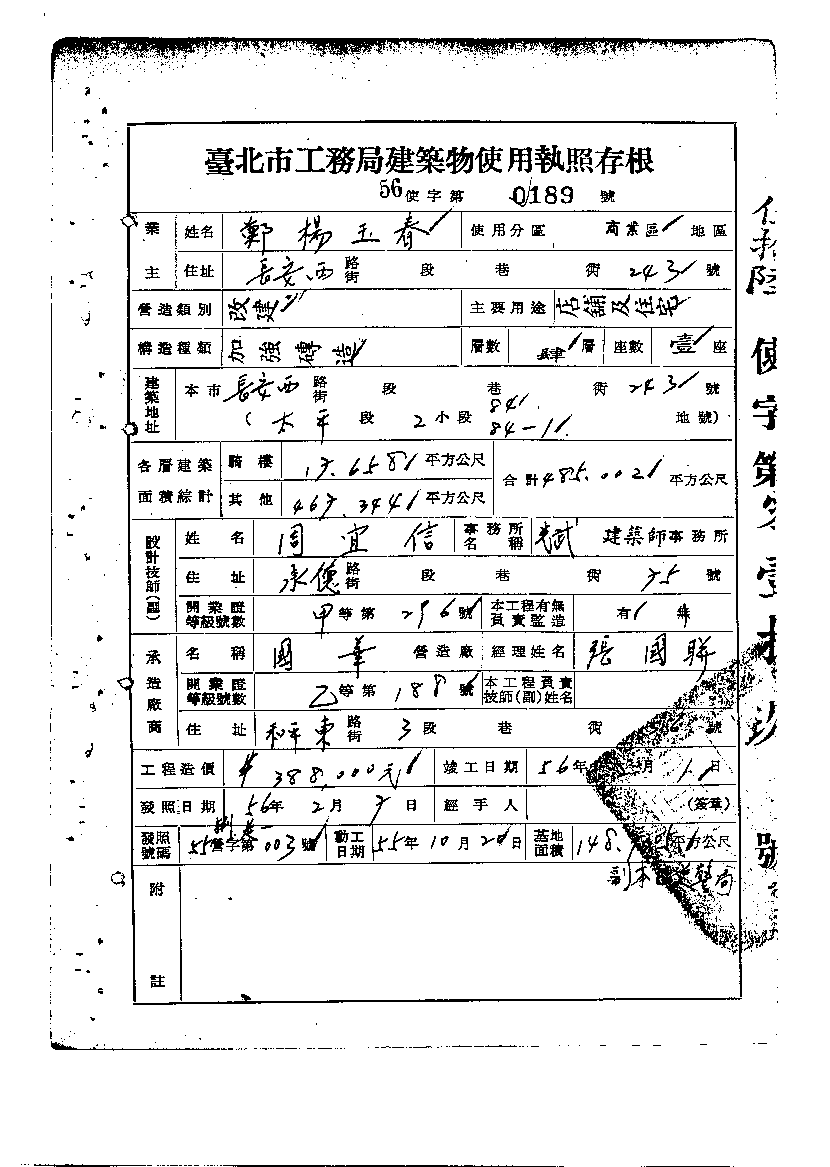 臺北市工務局建築物使用執照存根
56使字第 0189 號
業主 姓名 鄭楊玉春 使用分區 商業區 地區
住址 長安西 路街 段 巷 街 243 號
營造類別 改建 主要用途 店舖及住宅
構造種類 加強磚造 層數 肆 層 座數 壹 座
建築地址 本市 長安西 路街 段 巷 街 243 號
( 太平 段 2 小段 84 84-1 地號)
各層建築面積綜計 騎樓 17.658 平方公尺 合計 485.002 平方公尺
其他 467.344 平方公尺
設計技師(副) 姓名 周宜信 事務所名稱 建築師事務所
住址 承德 路街 段 巷 街 75 號
開業證等級號數 甲等第 296 號 本工程有無負責監造 有 無
承造廠商 名稱 國華 營造廠 經理姓名 張國聯
開業證等級號數 乙等第 188 號 本工程負責技師(副)姓名
住址 和平東 路街 3 段 巷 街 號
工程造價 388,000元 竣工日期 56年 月 1 日
發照日期 56年 2月 7日 經手人 (簽章)
發照號碼 55營字第 003 號 動工日期 55年 10月 20日 基地面積 148. 平方公尺
附註
副本 警局
使字第零壹捌玖號